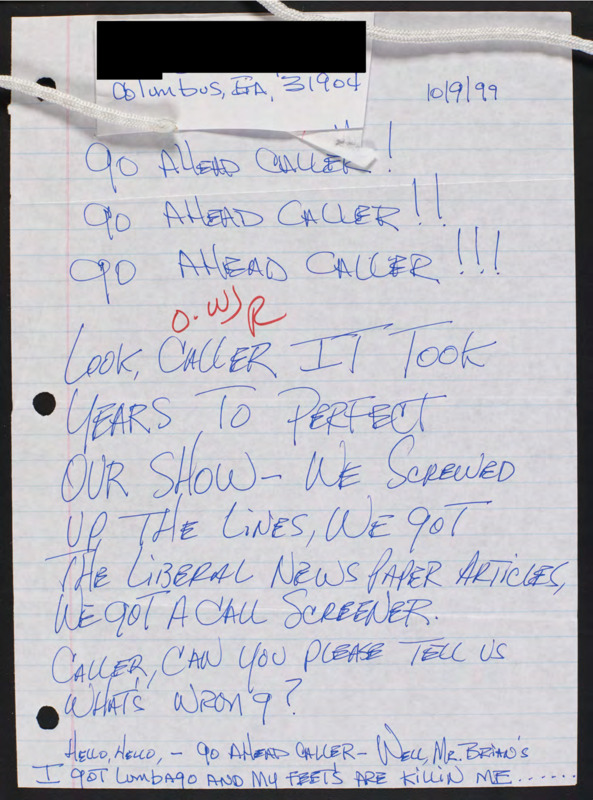 Columbus, GA, 31904
10/9/99
GO AHEAD CALLER!!!
GO AHEAD CALLER!!
GO AHEAD CALLER!!!
LOOK, CALLER IT TOOK
YEARS TO PERFECT
OUR SHOW- WE SCREWED
UP THE LINES, WE GOT
THE LIBERAL NEWS PAPER ARTICLES,
WE GOT A CALL SCREENER.
CALLER, CAN YOU PLEASE TELL US
WHAT'S WRONG?
HELLO, HELLO, - GO AHEAD CALLER- WELL, MR. BRIAN'S
I GOT LUMBAGO AND MY FEETS ARE KILLIN ME......